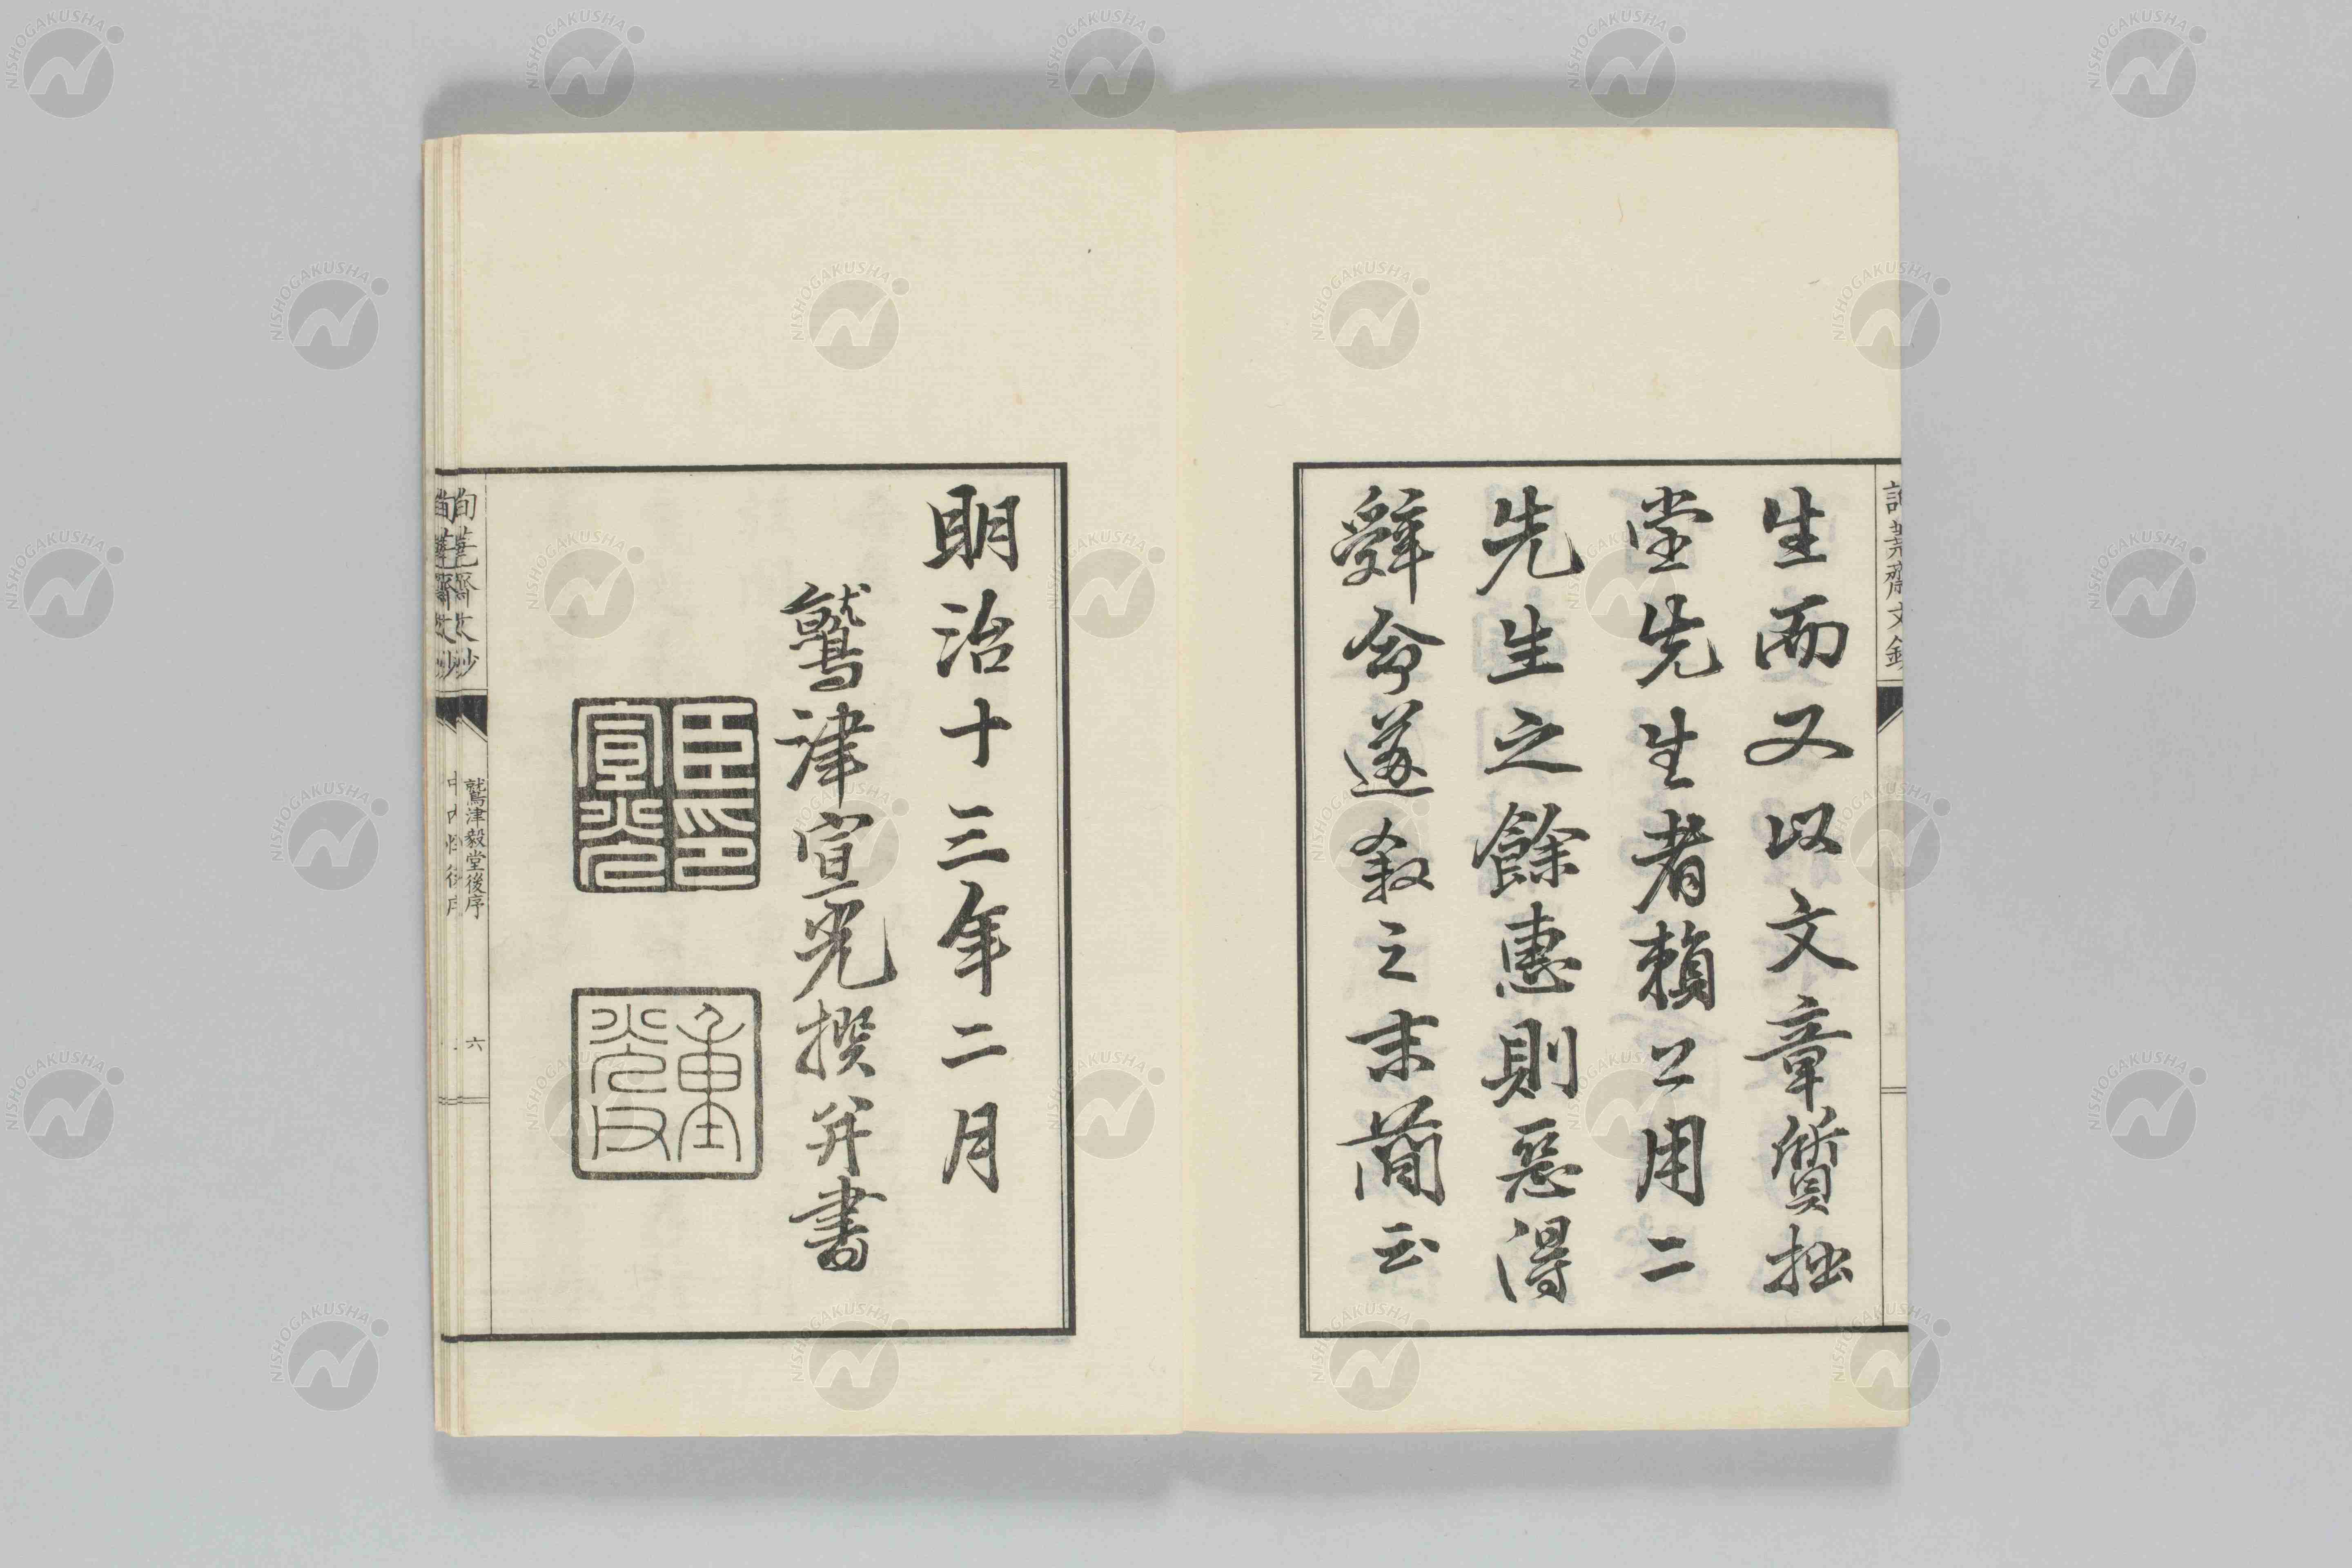 生而又以文章質拙
堂先生者頼公用二
先生之餘惠則惡得
辭命遂叙之末簡云
明治十三年二月
鷲津宣光撰并書
臣印
宣光
重光
鷲津毅堂後序
六
NISHOGAKUSHA